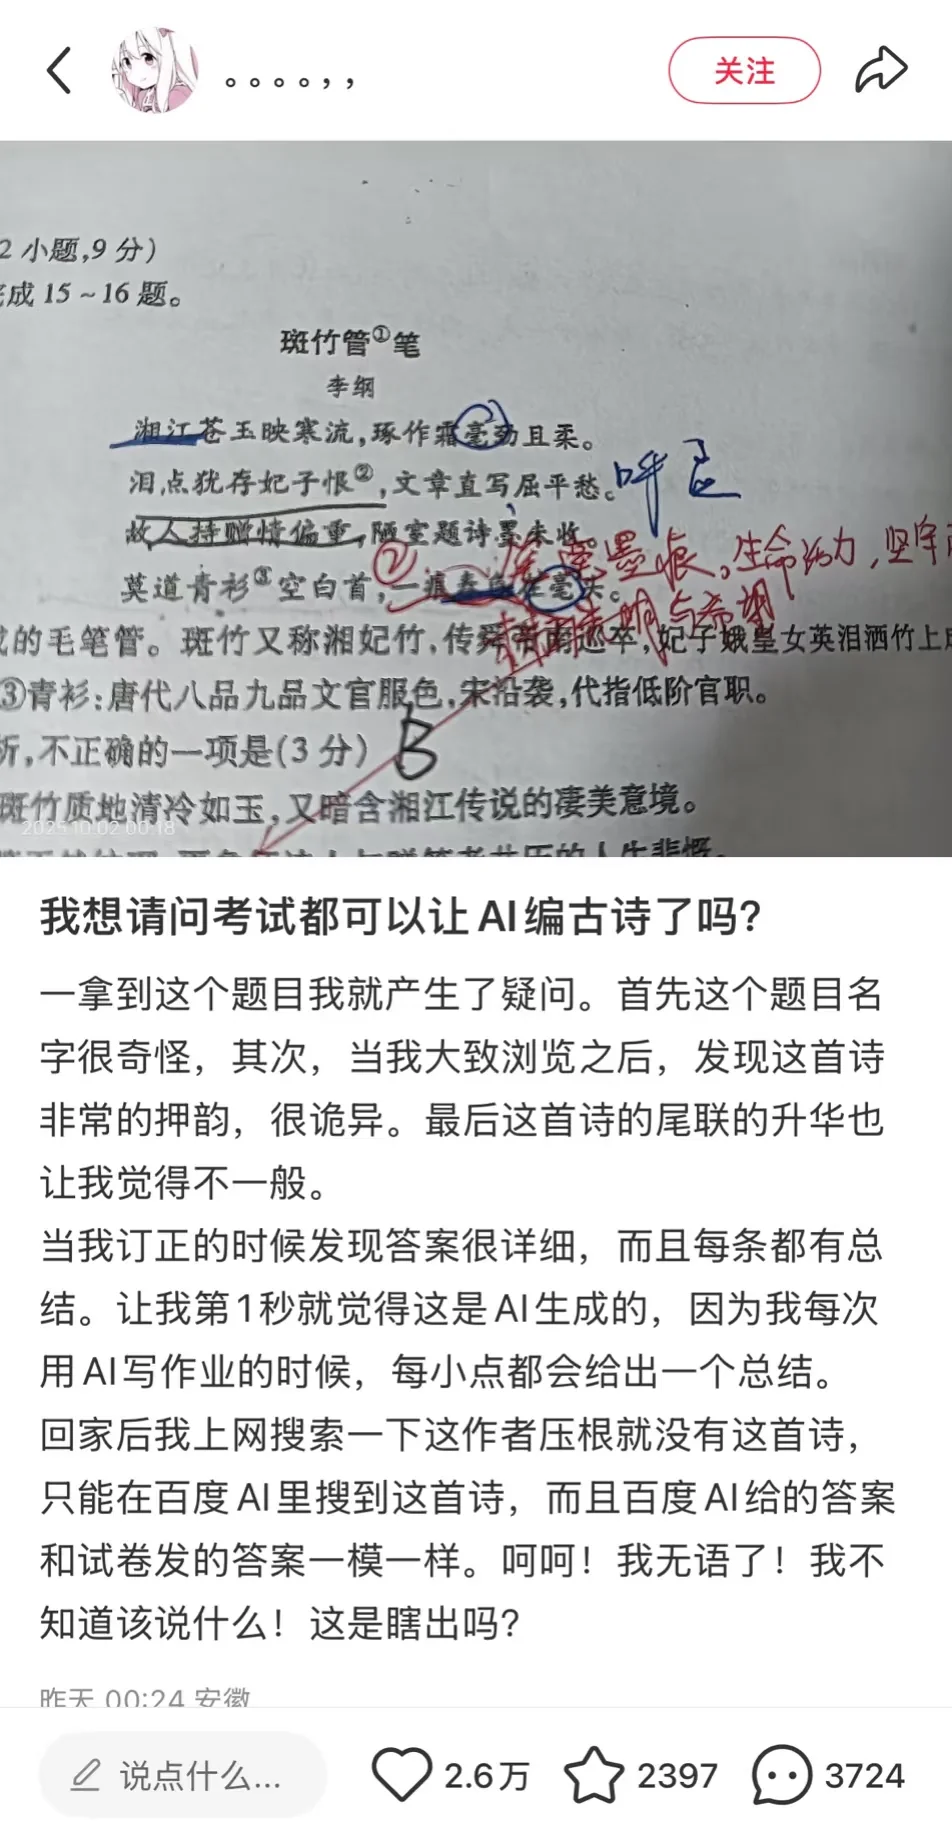 。。。。，，
关注
2 小题,9 分)
成 15～16 题。
斑竹管①笔
李纲
湘江苍玉映寒流,琢作霜毫劲且柔。
泪点犹存妃子恨②,文章直写屈平愁。
呼应
故人持赠情偏重,陋室题诗墨未收。
墨痕。生命活力，坚牢
莫道青衫③空白首,一痕春色在毫头。
②
明与希望
的毛笔管。斑竹又称湘妃竹,传舜帝南巡卒,妃子娥皇女英泪洒竹上
③青衫:唐代八品九品文官服色,宋沿袭,代指低阶官职。
析,不正确的一项是(3 分)
B
斑竹质地清冷如玉,又暗含湘江传说的凄美意境。
2025.10.02 00:18
我想请问考试都可以让AI编古诗了吗？
一拿到这个题目我就产生了疑问。首先这个题目名
字很奇怪，其次，当我大致浏览之后，发现这首诗
非常的押韵，很诡异。最后这首诗的尾联的升华也
让我觉得不一般。
当我订正的时候发现答案很详细，而且每条都有总
结。让我第1秒就觉得这是AI生成的，因为我每次
用AI写作业的时候，每小点都会给出一个总结。
回家后我上网搜索一下这作者压根就没有这首诗，
只能在百度AI里搜到这首诗，而且百度AI给的答案
和试卷发的答案一模一样。呵呵！我无语了！我不
知道该说什么！这是瞎出吗？
昨天 00:24 安徽
说点什么...
2.6万
2397
3724